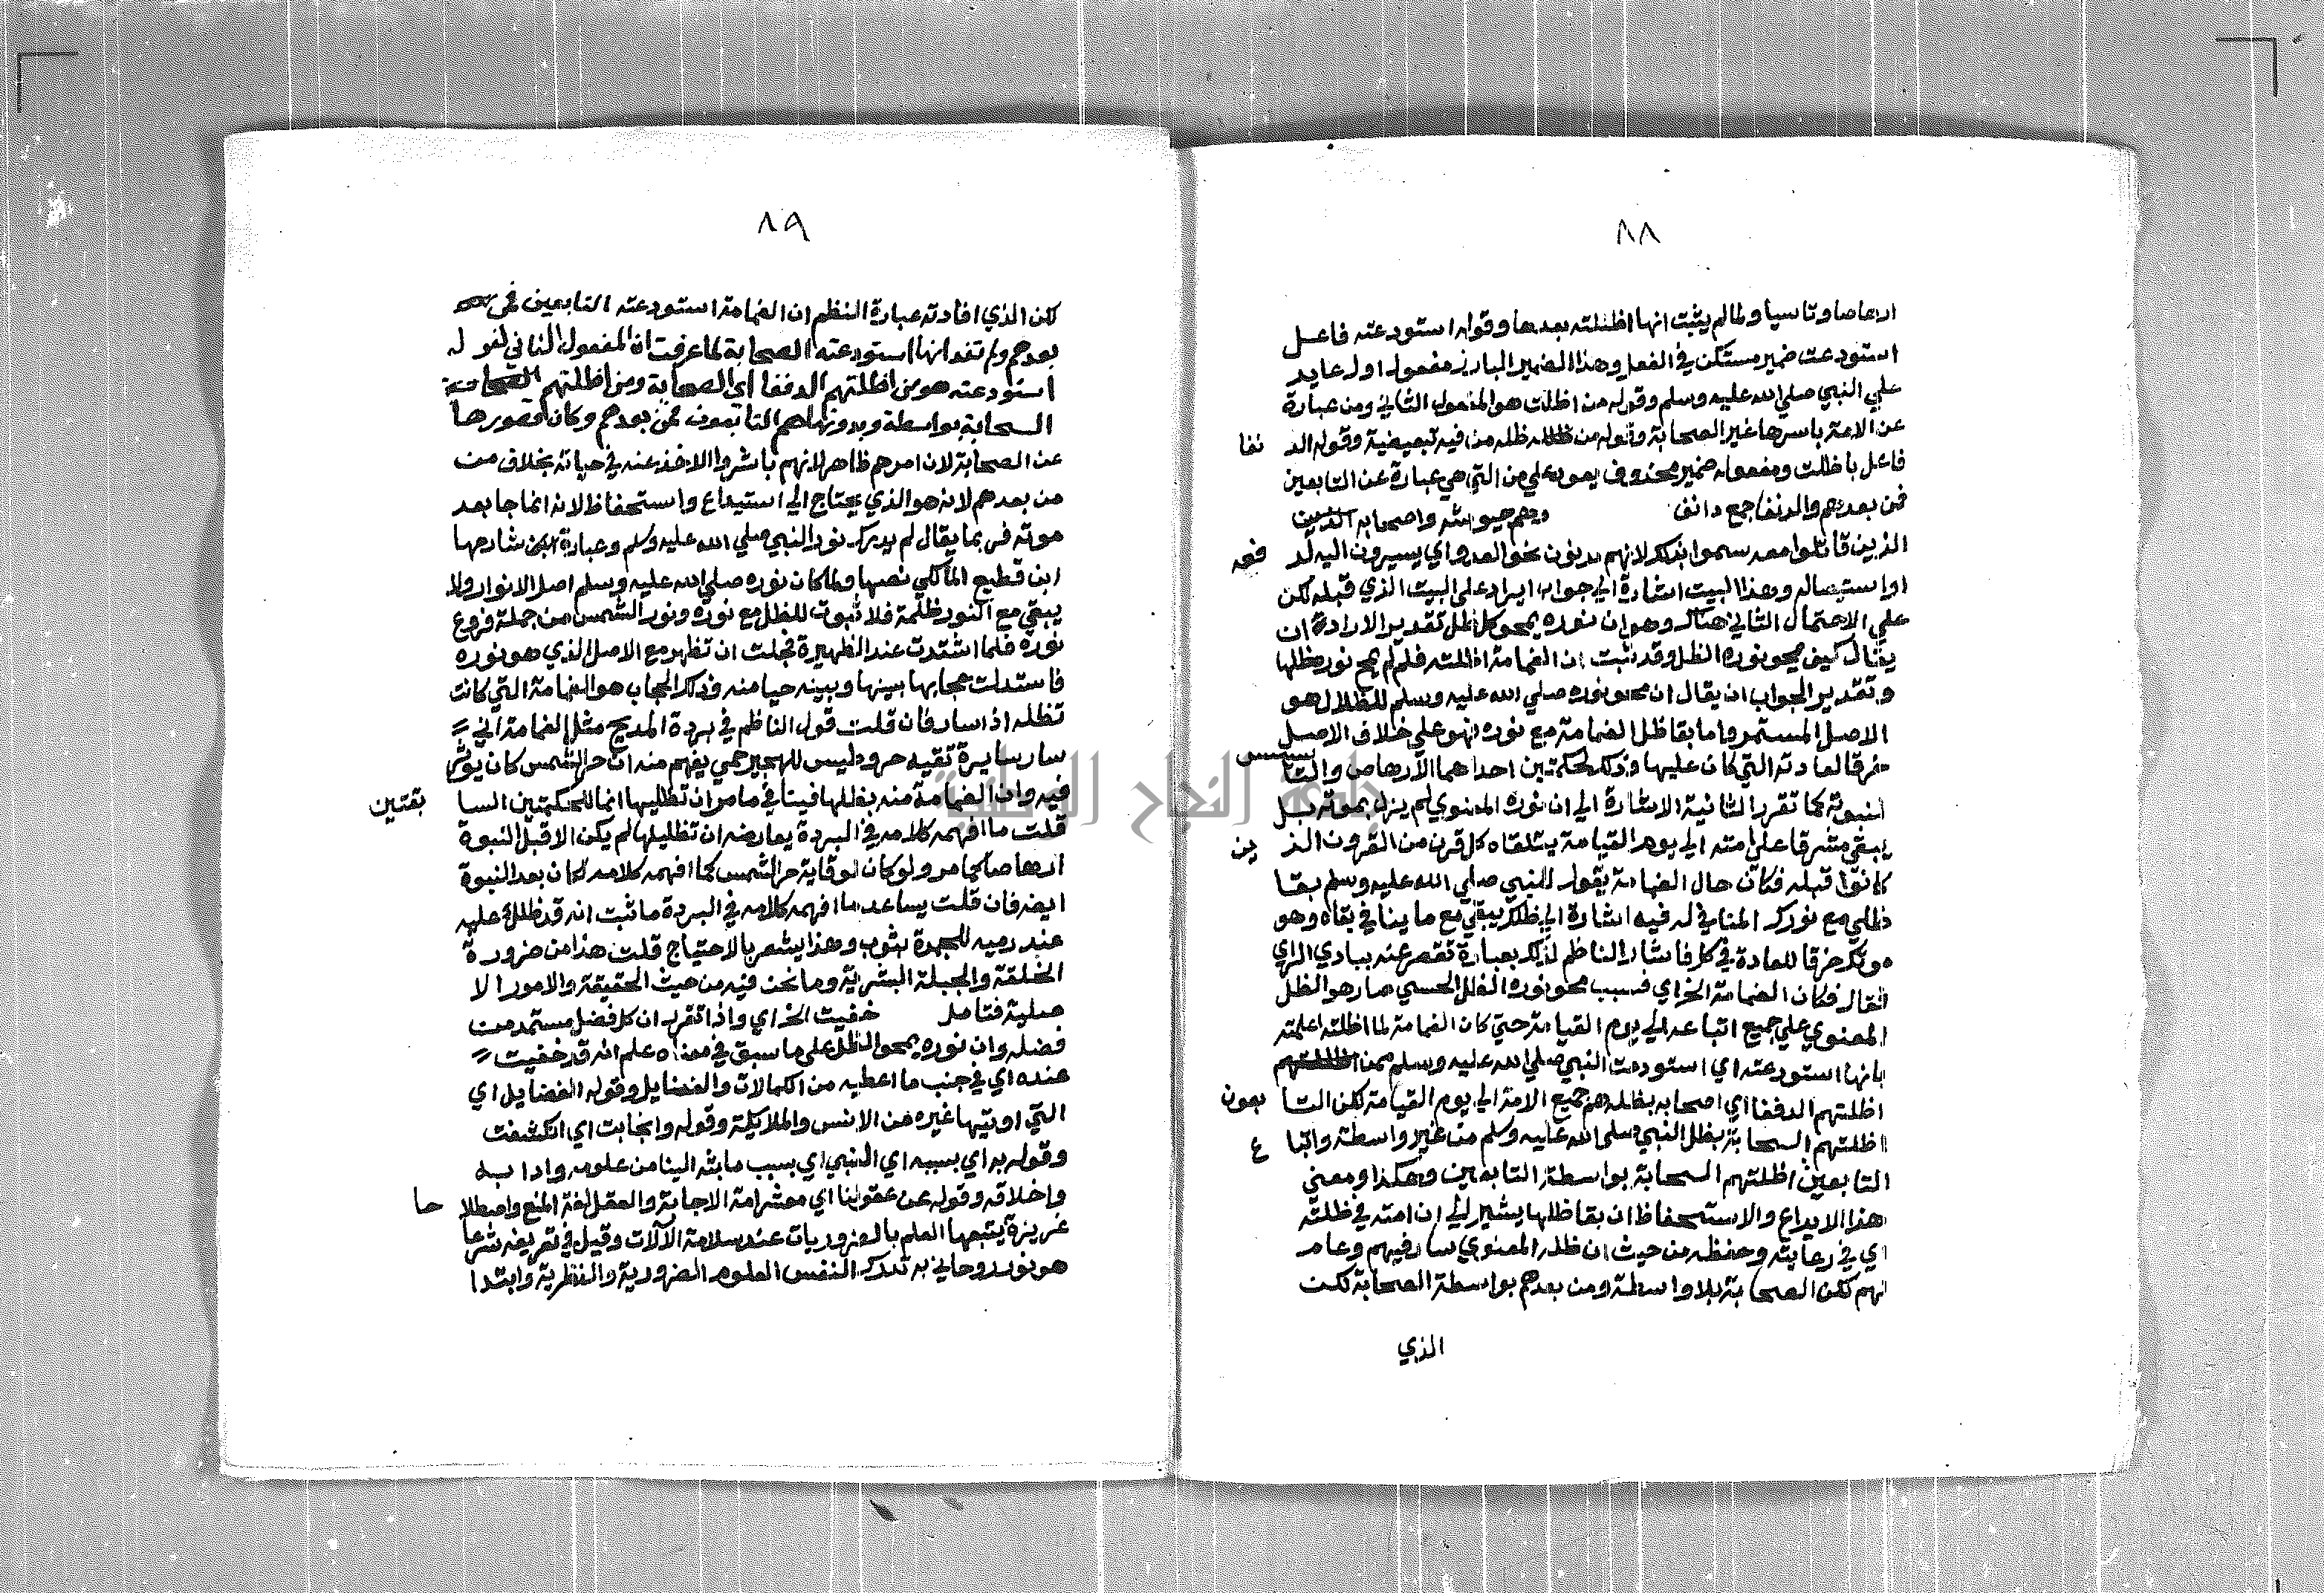 ٨٨
ارهاصا وتاسيا ولما لم يثبت انها اظلته بعدها وقوله استودعته فاعل
استودعت ضمير مستكن في الفعل وهذا الضمير البارز مفعول اول عايد
علي النبي صلي الله عليه وسلم وقوله من اظلت هو المفعول الثاني ومن عبارة
عن الامة باسرها غير الصحابة وقوله من ظلله ظله من فيه تبعيضية وقوله الد نفا
فاعل باظلت ومفعوله ضمير محذوف يعود علي من التي هي عبارة عن التابعين
فمن بعدهم والدففا جمع دانف وهم جيوشه واصحابه
الذين قاتلوا معه سموا بذلك لانهم يدنون نحو العدو اي يسيرون اليه لد فعه
او استيصاله وهذا البيت اشارة الي جواب ايراد علي البيت الذي قبله لكن
علي الاحتمال الثاني هناك وهو ان نوره يمحو كل ظل تقدير الارادة ان
يقال كيف يمحو نوره الظل وقد ثبت ان الغمامة اظلته فلم لم يمح نوره ظلها
وتقدير الجواب ان يقال ان محو نوره صلي الله عليه وسلم للظلال هو
الاصل المستمر واما بقا ظل الغمامة مع نوره فهو علي خلاف الاصل
خرقا لعادته التي كان عليها وذلك لحكمتين احداهما الارهاص والتا سيس
لنبوته كما تقرر الثانية الاشارة الي ان نوره المعنوي لم يزل بموته بل
يبقي مشرقا علي امته الي يوم القيامة يتلقاه كل قرن من القرون الذ ين
كانوا قبله فكان حال الغمامة يقول للنبي صلي الله عليه وسلم بقا
ظلي مع نورك المنافي له فيه اشارة الي ظلك يبقي مع ما ينافي بقاه وهو
موتك خرقا للعادة في كل فاشار الناظم لذلك بعبارة تقصر عنه ببادي الراي
فقال فكان الغمامة الخ اي فسبب محو نوره الظل الحسي صار هو الظل
المعنوي علي جميع اتباعه الي يوم القيامة حتي كان الغمامة لما اظلته اعلمته
بانها استودعته اي استودعت النبي صلي الله عليه وسلم ممن
اظلتهم الدففا اي اصحابه بظله هم جميع الامة الي يوم القيامة لكن التا بعون
اظلتهم السحابة بظل النبي صلي الله عليه وسلم من غير واسطة واتبا ع
التابعين اظلتهم السحابة بواسطة التابعين وهكذا ومعني
هذا الايداع والاستحفاظ ان بقا ظلها يشير الي ان امته في ظلته
اي في رعايته وحفظه من حيث ان ظله المعنوي سار فيهم وعامر
لهم لكن الصحابة بلا واسطة ومن بعدهم بواسطة الصحابة لكن
الذي
٨٩
لكن الذي افادته عبارة النظم ان الغمامة استودعته التابعين فمن
بعدهم ولم تفد انها استودعته الصحابة لما عرفت ان المفعول الثاني لقوله
استودعته هو من اظلتهم الدففا اي الصحابة ومن اظلتهم الصحابة
السحابة بواسطة وبدونها هم التابعون فمن بعدهم وكان قصورها
عن الصحابة لان امرهم ظاهر لانهم باشروا الاخذ عنه في حياته بخلاف من
من بعدهم لانه هو الذي يحتاج الي استيداع واستحفاظ لانه انما جا بعد
موته فربما يقال لم يدرك نور النبي صلي الله عليه وسلم وعبارة شارحها
ابن قطيع المالكي نصها ولما كان نوره صلي الله عليه وسلم اصل الانوار ولا
يبقي مع النور ظلمة فلا ثبوت للظل مع نوره ونور الشمس من جملة فروع
نوره فلما اشتدت عند الظهيرة خجلت ان تظهر مع الاصل الذي هو نوره
فاستدلت حجابها بينها وبينه حيا منه وذلك الحجاب هو الغمامة التي كانت
تظله اذا سار فان قلت قول الناظم في بردة المديح مثل الغمامة اني
سار سايرة تقيه حر وطيس للهجير حمي يفهم منه ان حر الشمس كان يوثر
فيه وان الغمامة منه بظلها فينافي ما مر ان تظليها انما للحكمتين السا بقتين
قلت ما افهمه كلامه في البردة يعارضه ان تظليلها لم يكن الا قبل النبوة
ارهاصا كما مر ولو كان لوقاية حر الشمس كما افهمه كلامه لكان بعد النبوة
ايضا فان قلت يساعد ما افهمه كلامه في البردة ما ثبت انه قد ظلل عليه
عند رميه للجمرة بثوب وهذا يشعر بالاحتياج قلت هذا من ضرورة
الخلقة والجبلة البشرية وما نحن فيه من حيث الحقيقة والامور الا
صلية فتامل خفيت الخ اي واذا تقرر ان كل فضل مستمد من
فضله وان نوره يمحو الظل علي ما سبق في معناه علم انه قد خفيت
عنده اي في جنب ما اعطيه من الكمالات والفضايل وقوله الفضايل اي
التي اوتيها غيره من الانس والملايكة وقوله وانجابت اي انكشفت
وقوله به اي بسببه اي النبي اي بسبب ما بثه الينا من علومه وادابه
واخلاقه وقوله عن عقولنا اي معشر امة الاجابة والعقل لغة المنع واصطلا حا
غريزة يتبعها العلم بالضروريات عند سلامة الآلات وقيل في تعريفه شرعا
هو نور روحاني به تدرك النفس العلوم الضرورية والنظرية وابتدا
جامعة النجاح الوطنية